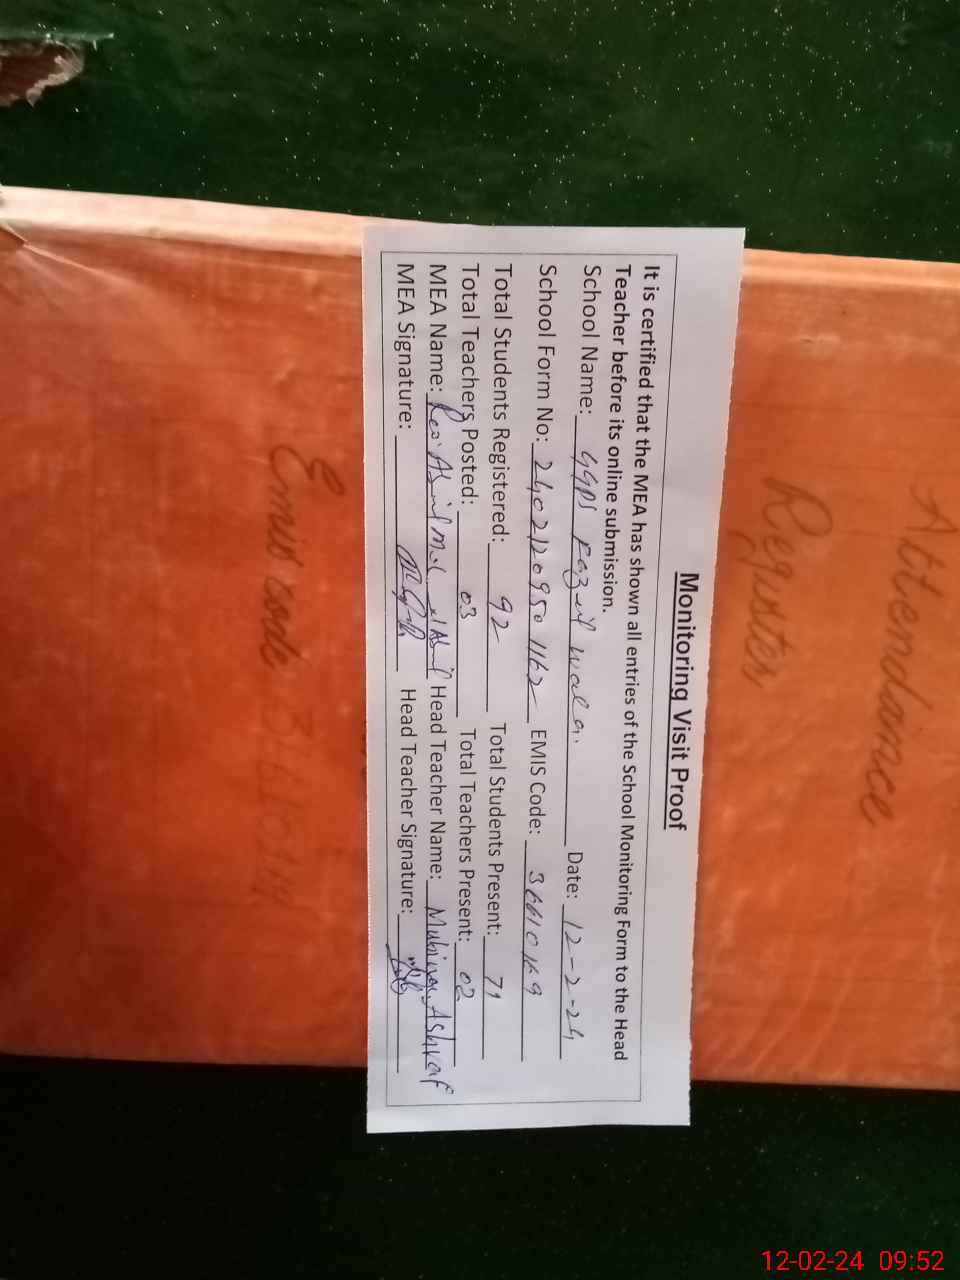 Attendance
Register
Monitoring Visit Proof
It is certified that the MEA has shown all entries of the School Monitoring Form to the Head
Teacher before its online submission.
School Name: GGPS Fazil wala. Date: 12-2-24
School Form No: EMIS Code:
Total Students Registered: 92 Total Students Present: 71
Total Teachers Posted: 03 Total Teachers Present: 02
MEA Name: Head Teacher Name: Ashraf
MEA Signature: Head Teacher Signature:
Emis code
12-02-24 09:52